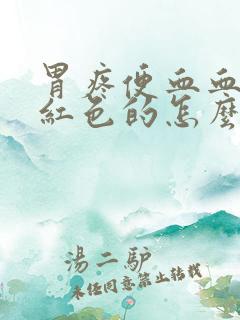 胃疼便血血
紅色的怎麼
湯二馿
未任同意禁止转载